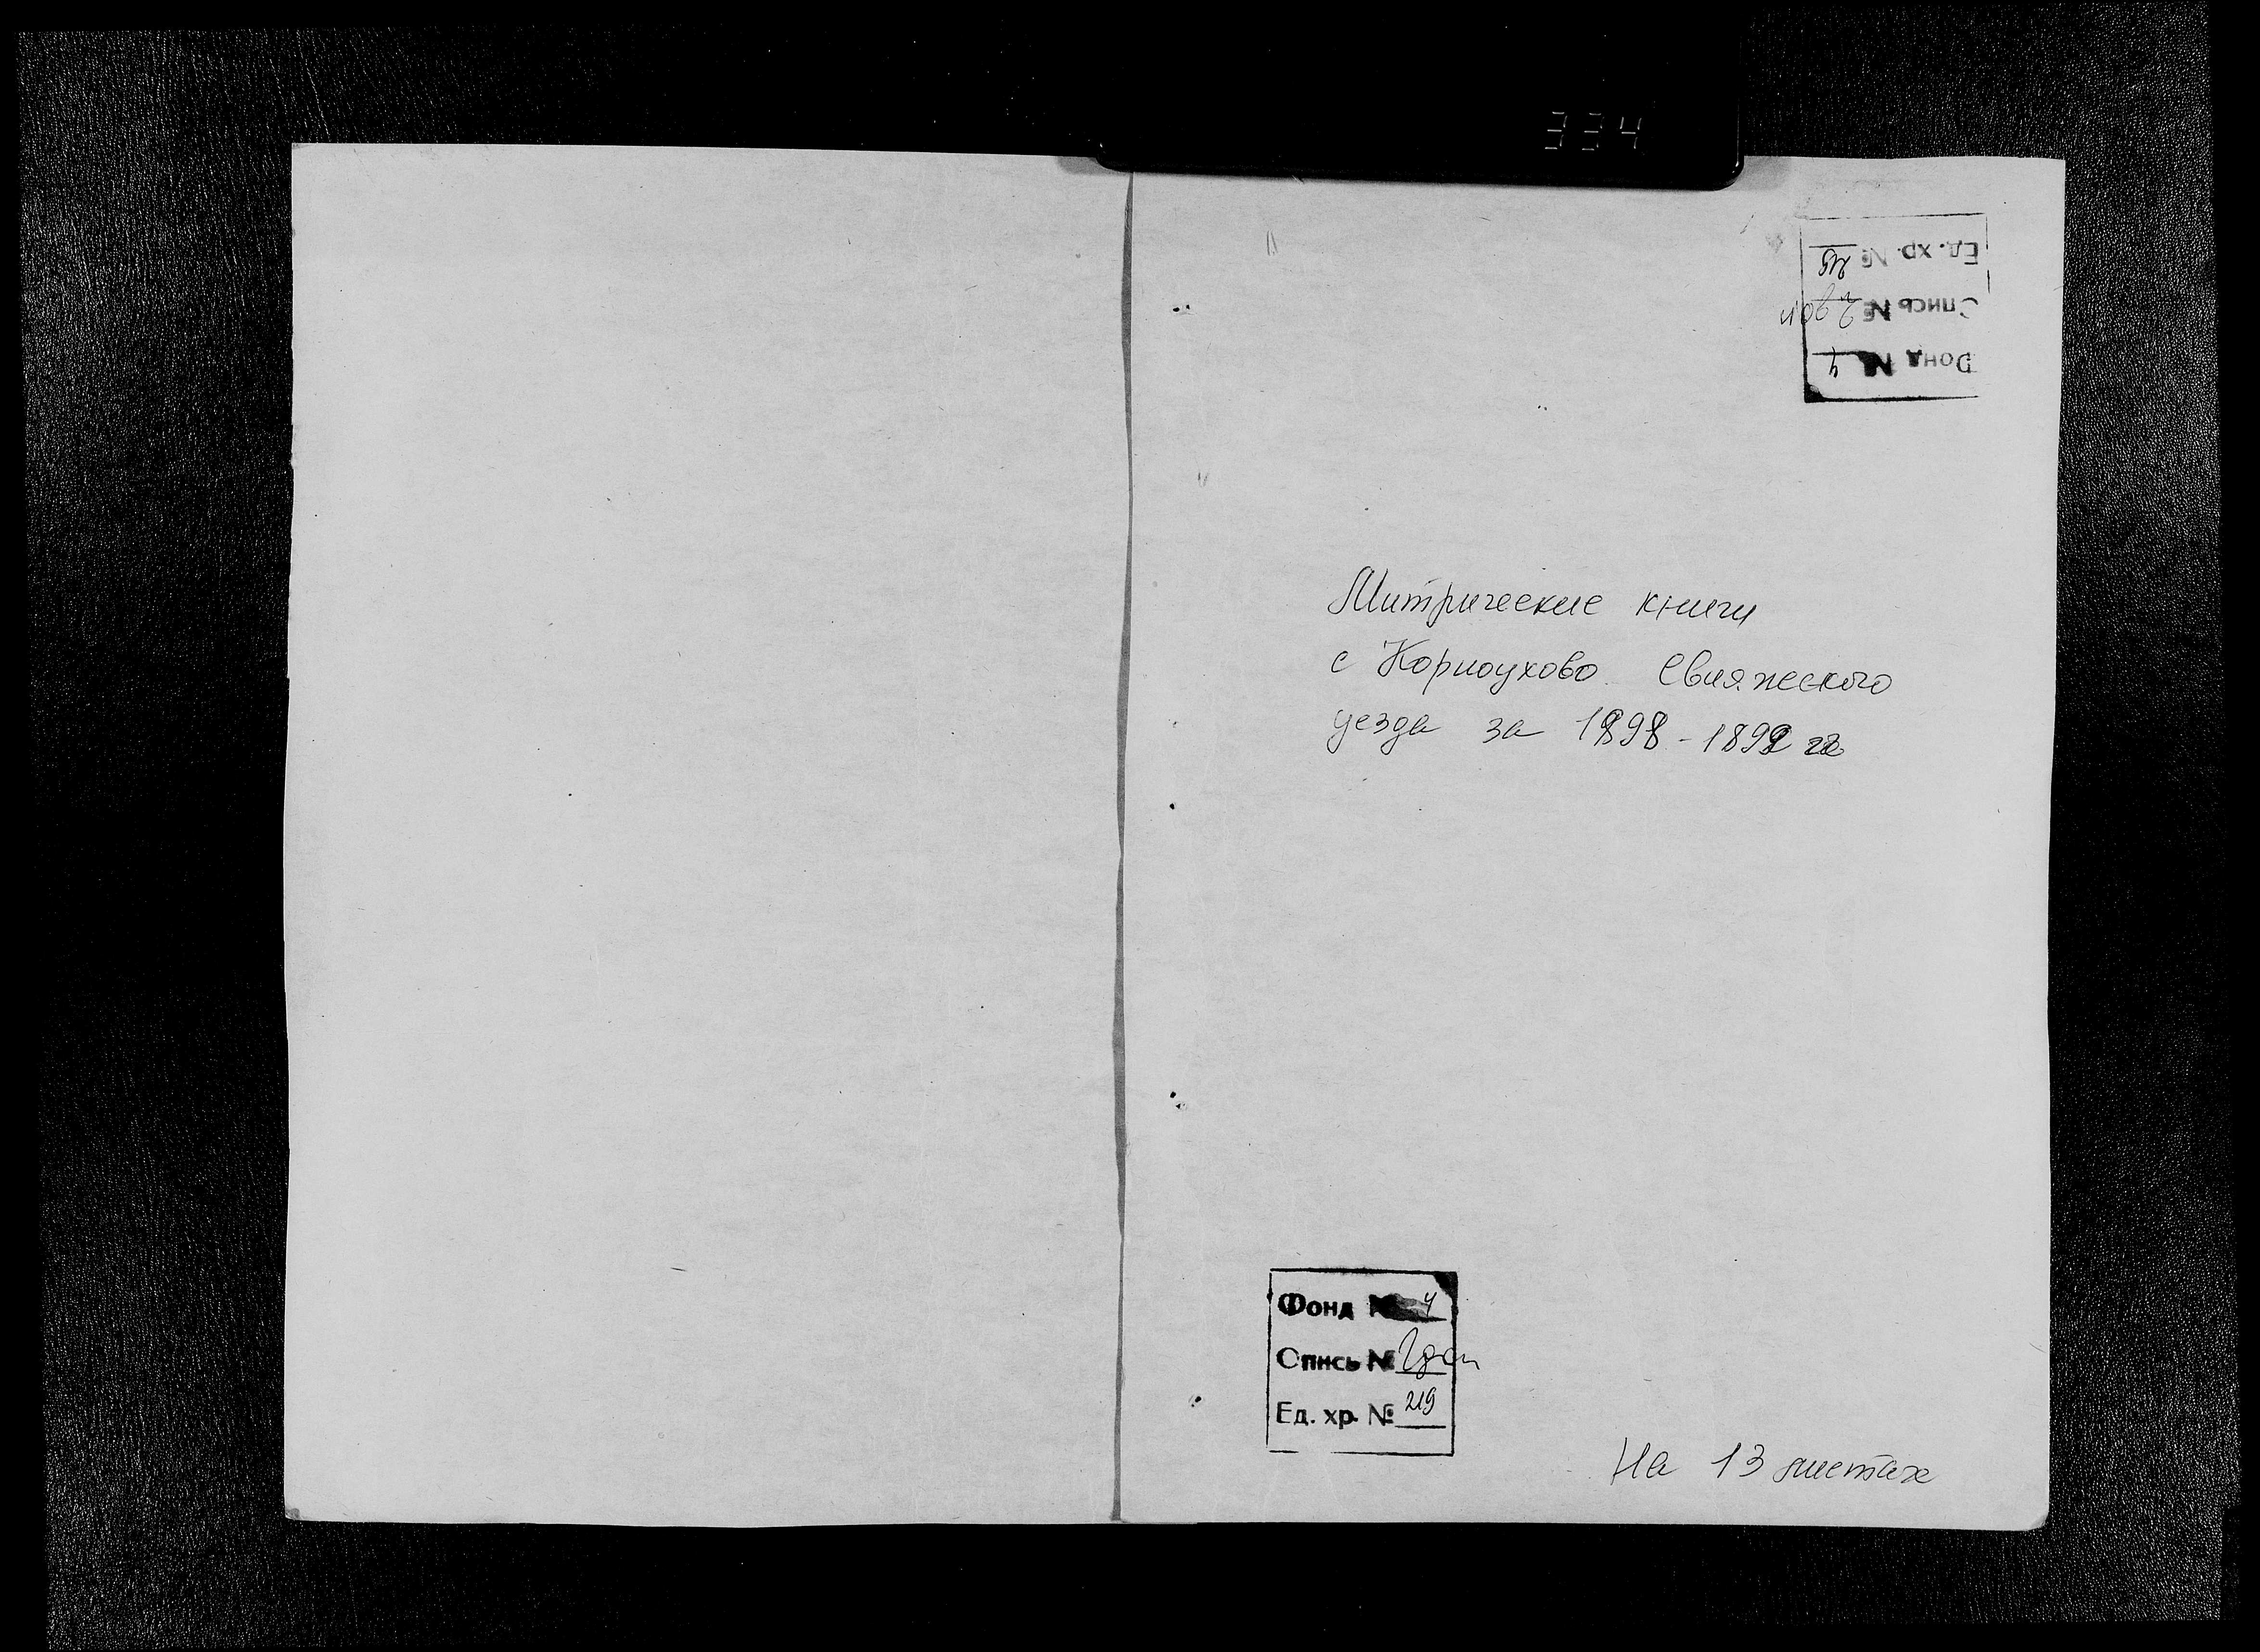 334
Ед. хр. №
Опись №
Фонд № 4
Митрические книги
с Корноухово Свияжского
уезда за 1898-1899 гг
Фонд № 4
Опись № 2доп
Ед. хр. № 219
На 13 листах